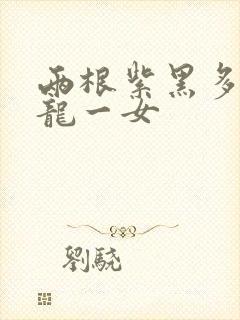 兩根紫黑多
龍一女
劉驍